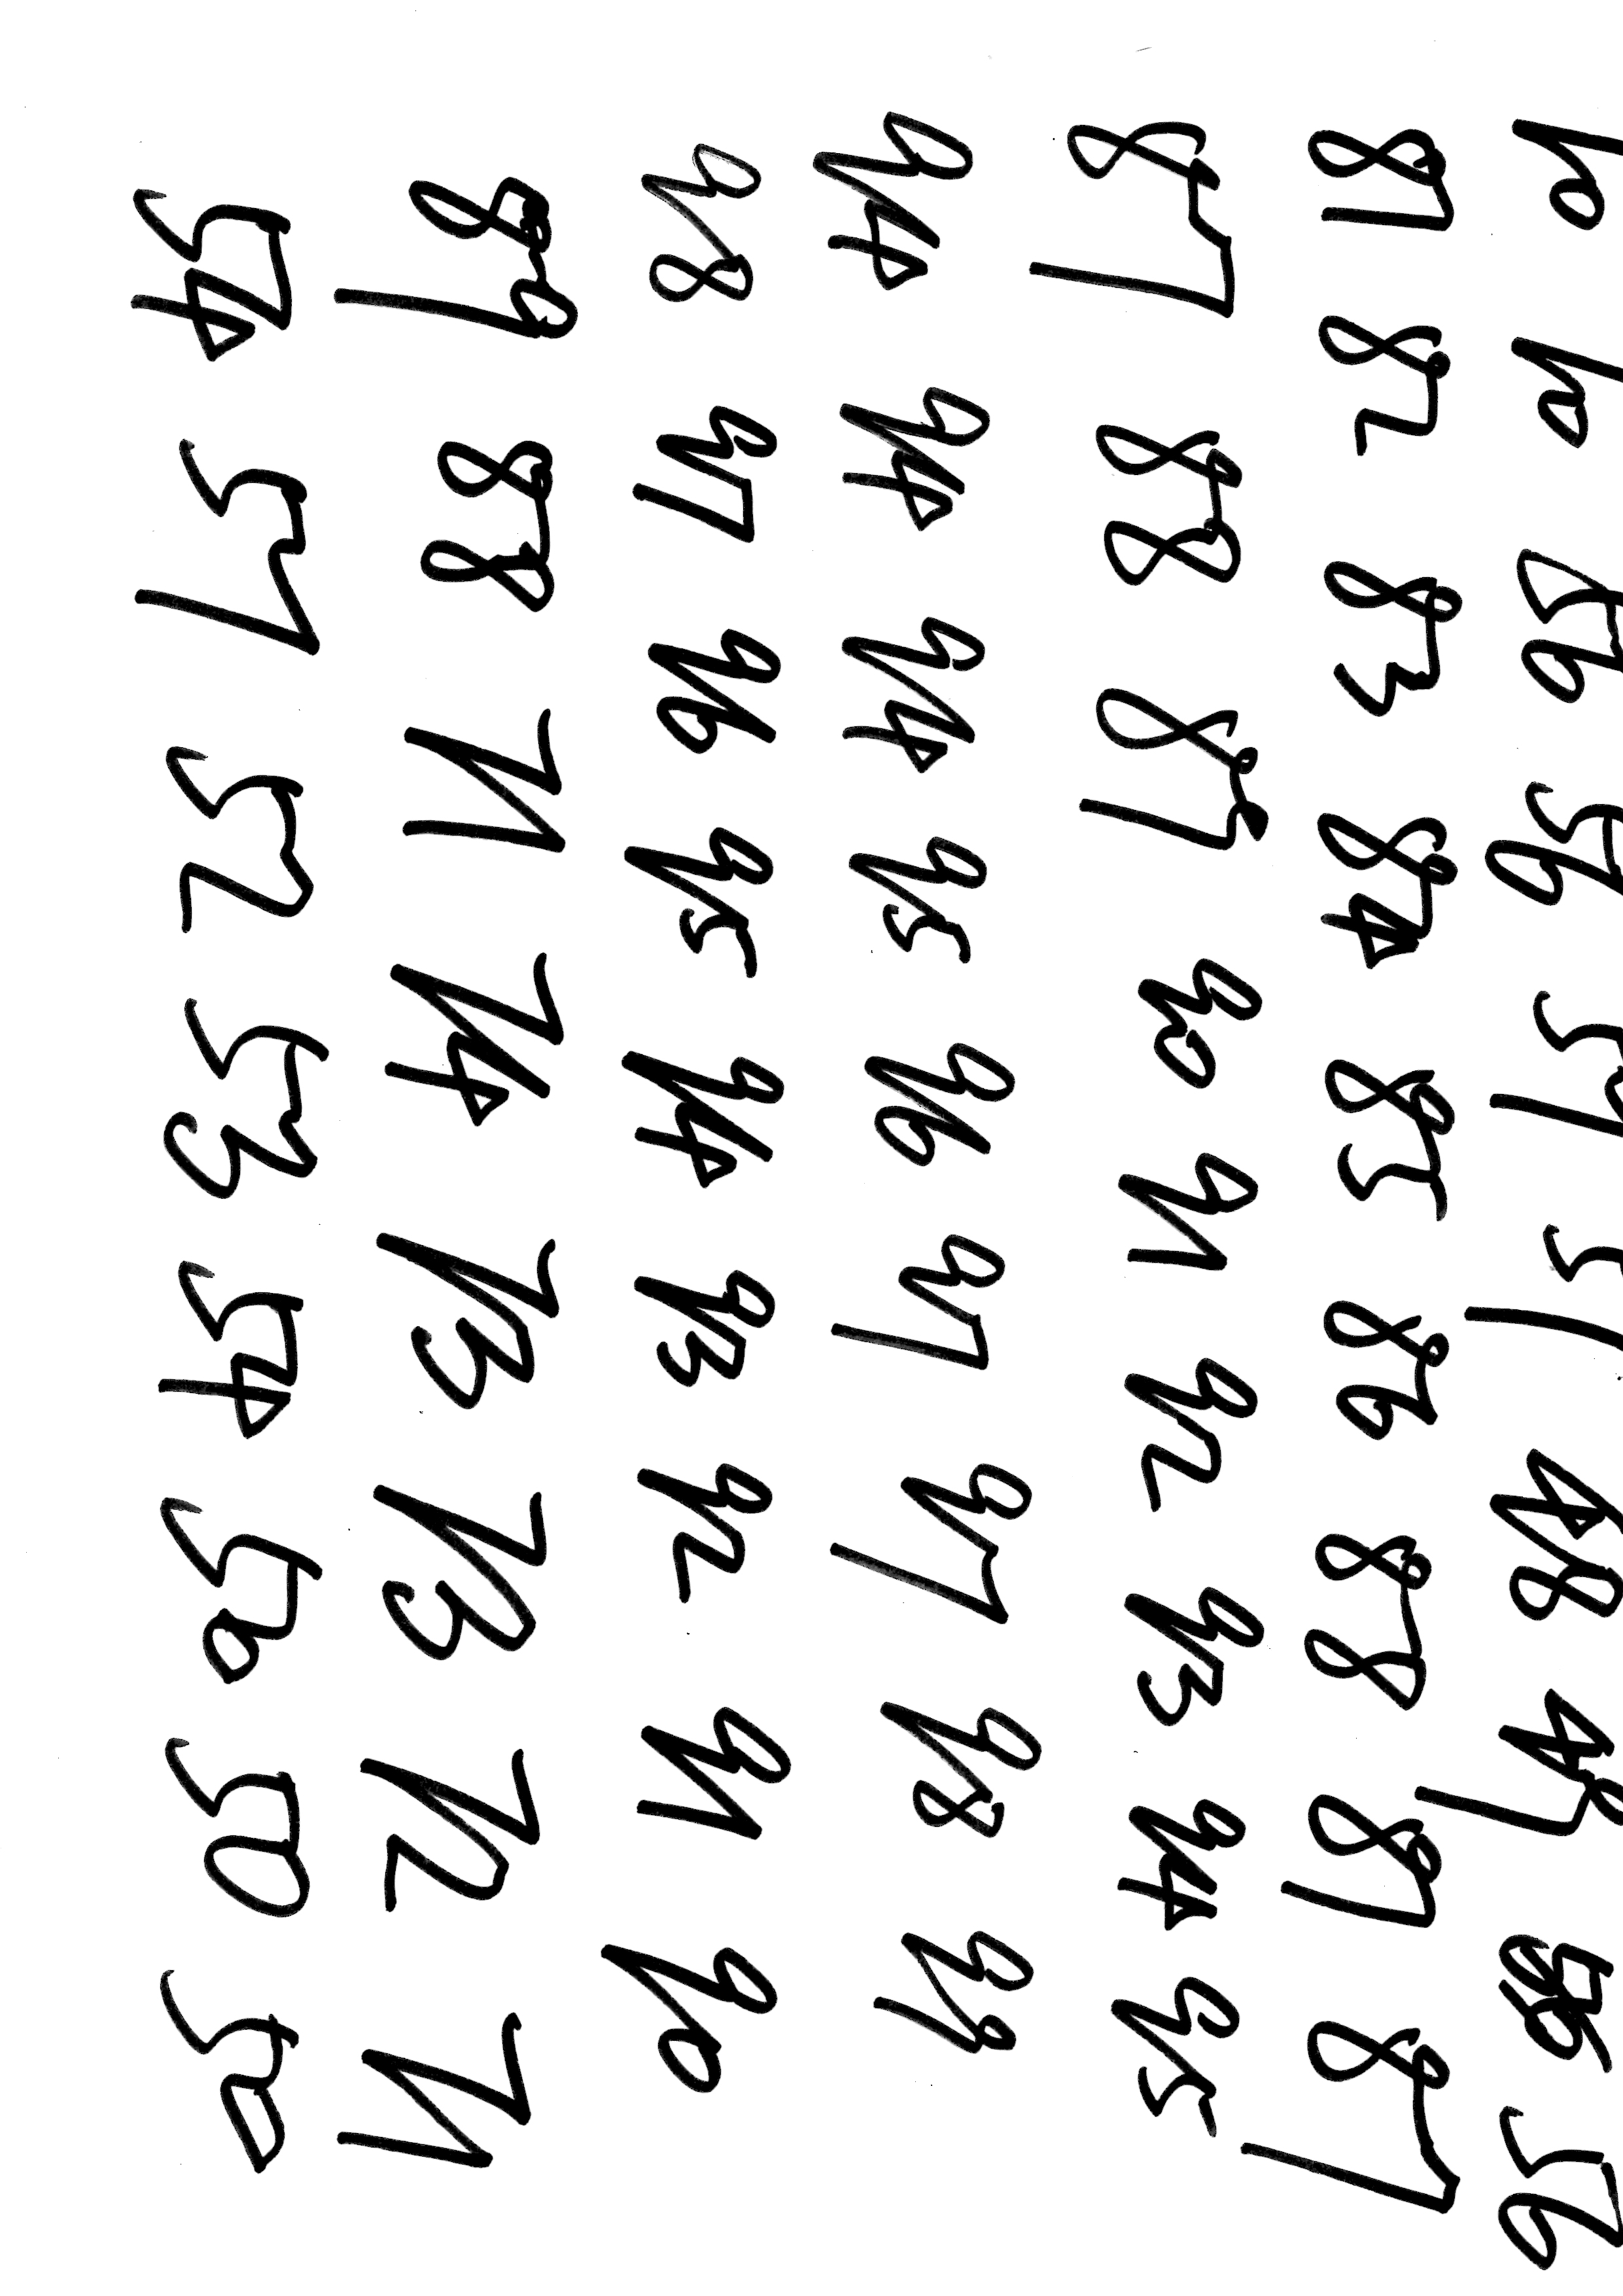 56 56 51 51 48 49 56 56
81 82 83 84 85 86 88 87 87
87 88 89 90 91 92 93 94 95
94 94 94 95 96 97 97 98 99
98 97 96 95 94 93 92 91 90
89 88 71 74 73 73 72 71
54 51 52 53 54 50 50 50